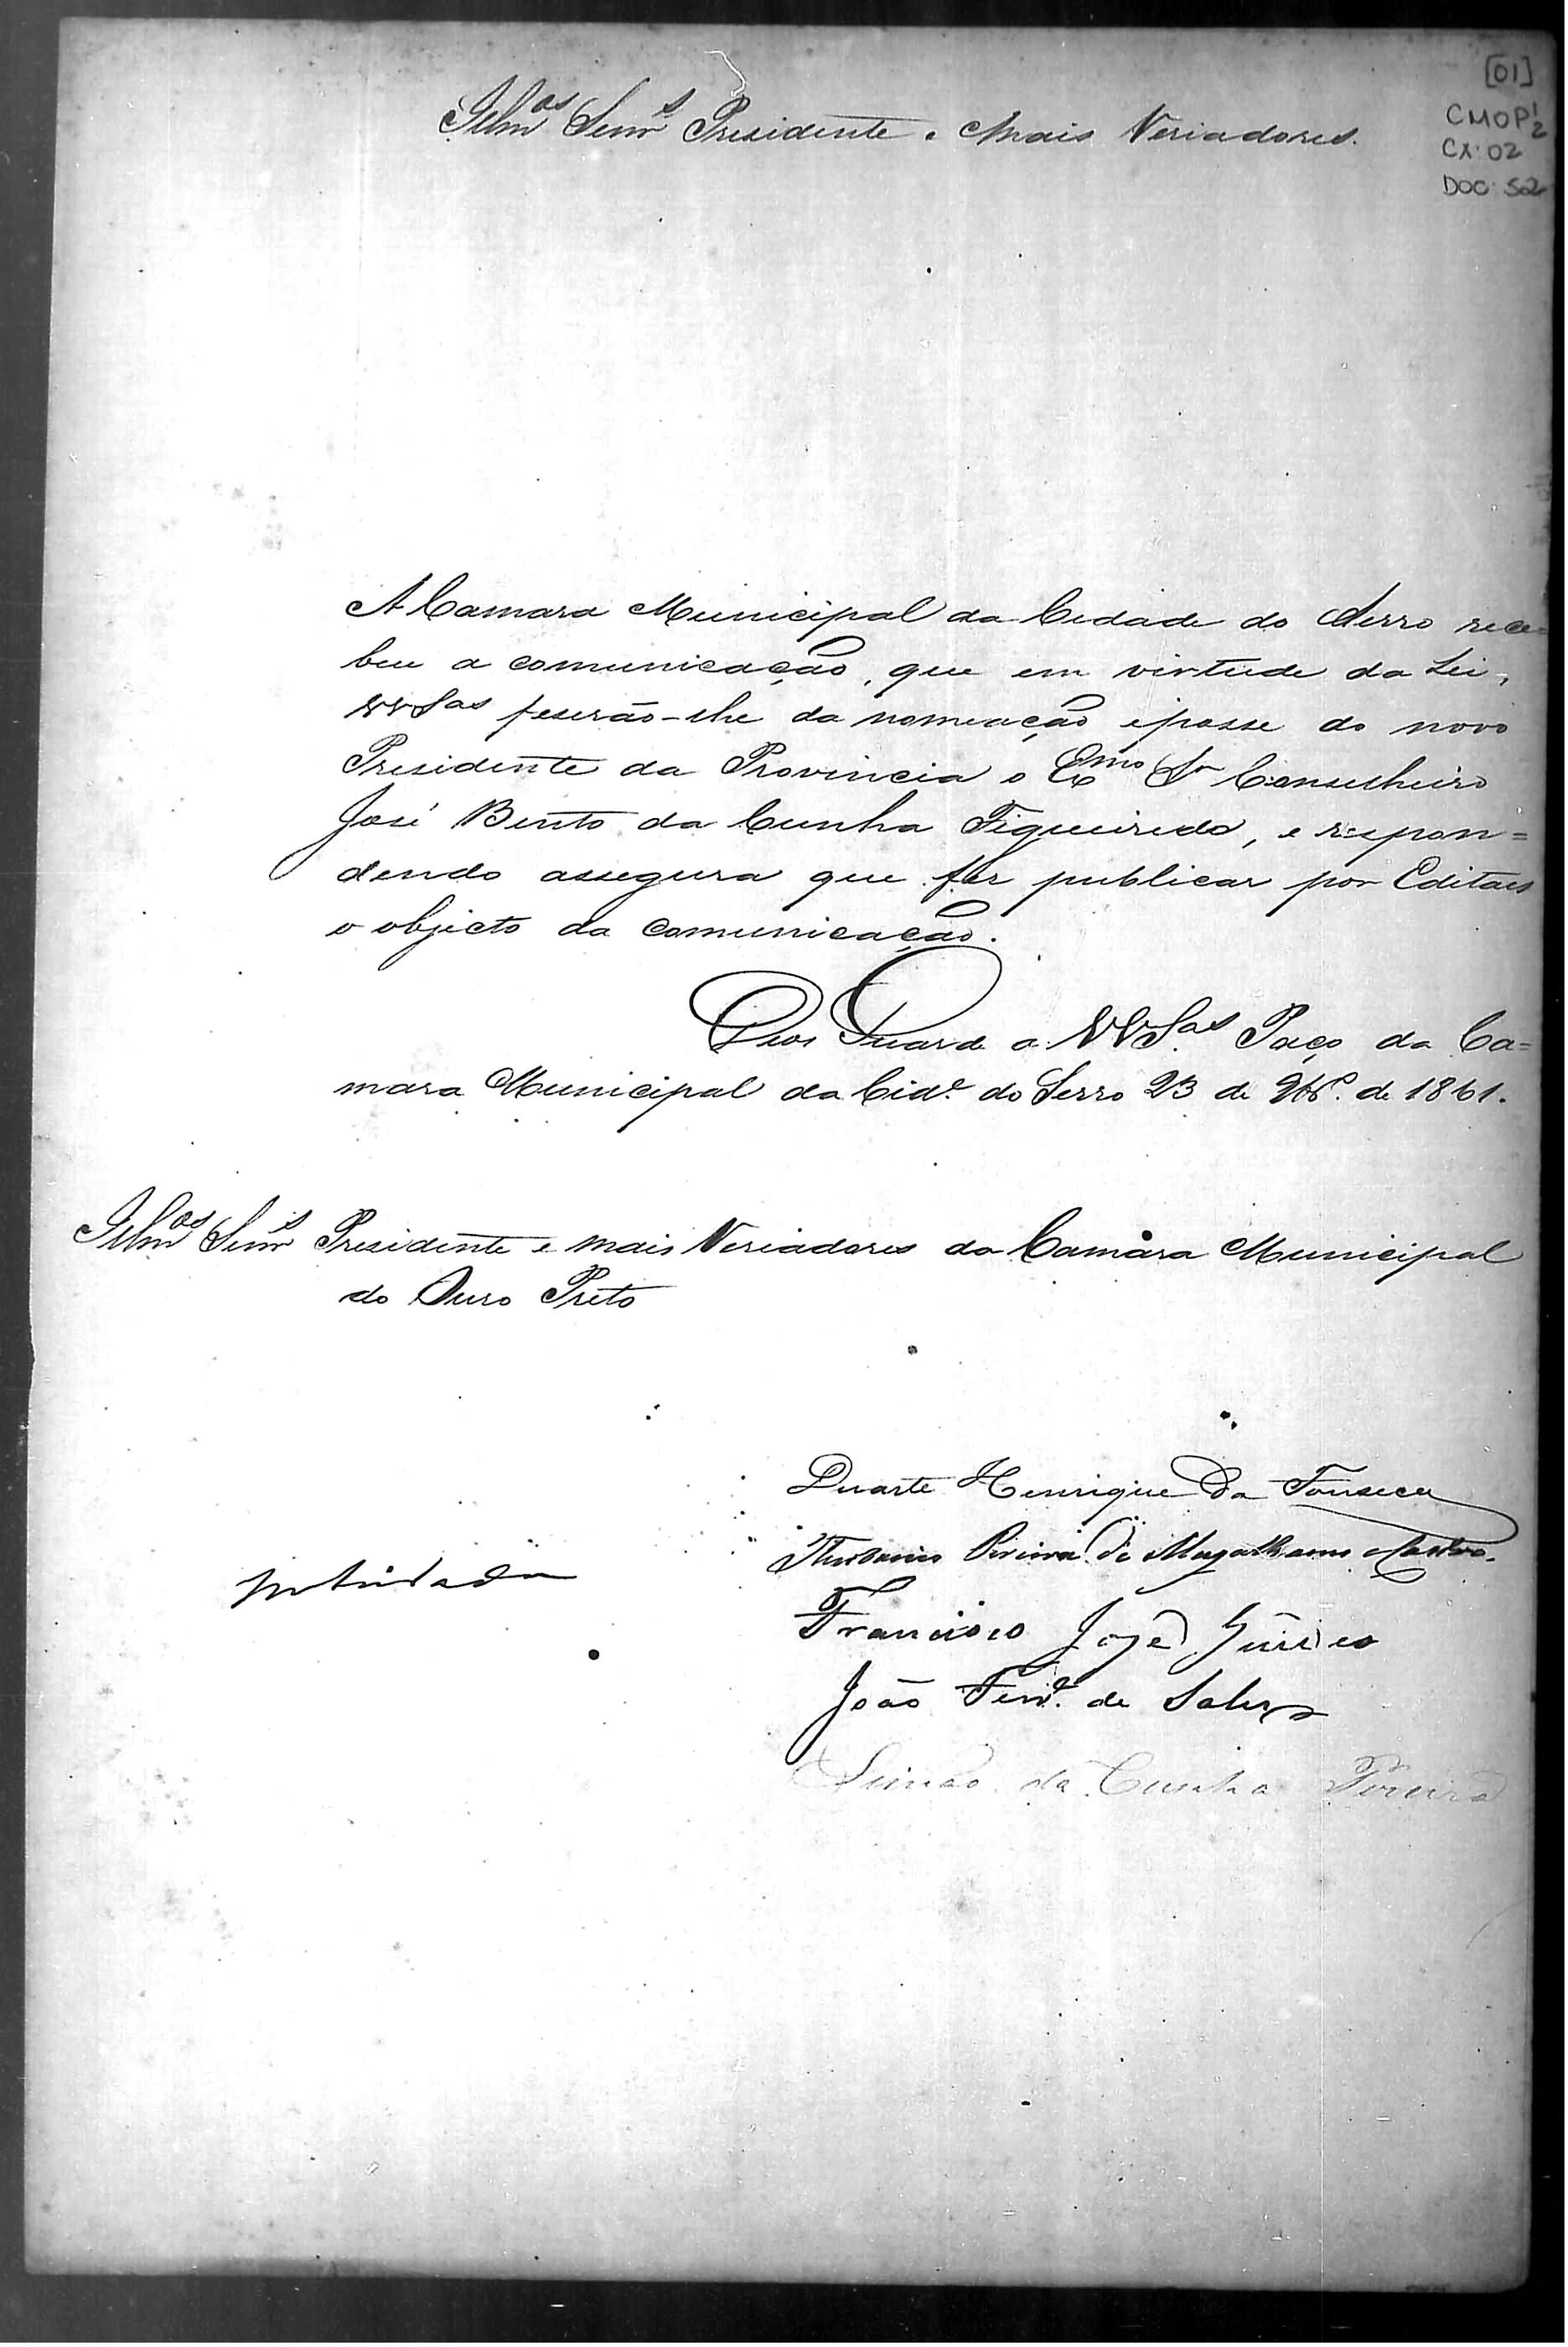 [01]
CMOP 1/2
CX: 02
DOC: 52
Illmos Senrs Presidente e Mais Veriadores.
A Camara Municipal da Cidade do Serro rece=
beu a comunicação, que em virtude da Lei,
VVSas feserão-lhe da nomeação eposse do novo
Presidente da Provincia o Exmo Sr Conselheiro
José Bento da Cunha Figueiredo, e respon=
dendo assegura que fez publicar por Editaes
o objecto da comunicação.
Deos Guarde a VVSas Paço da Ca=
mara Municipal da Cide do Serro 23 de de 1861.
Illmos Senrs Presidente e mais Veriadores da Camara Municipal
do Ouro Preto
Duarte Henrique da Fonseca
Antonio Pereira de Magalhaens e Castro.
Francisco José
João de Salles
Simão da Cunha Pereira